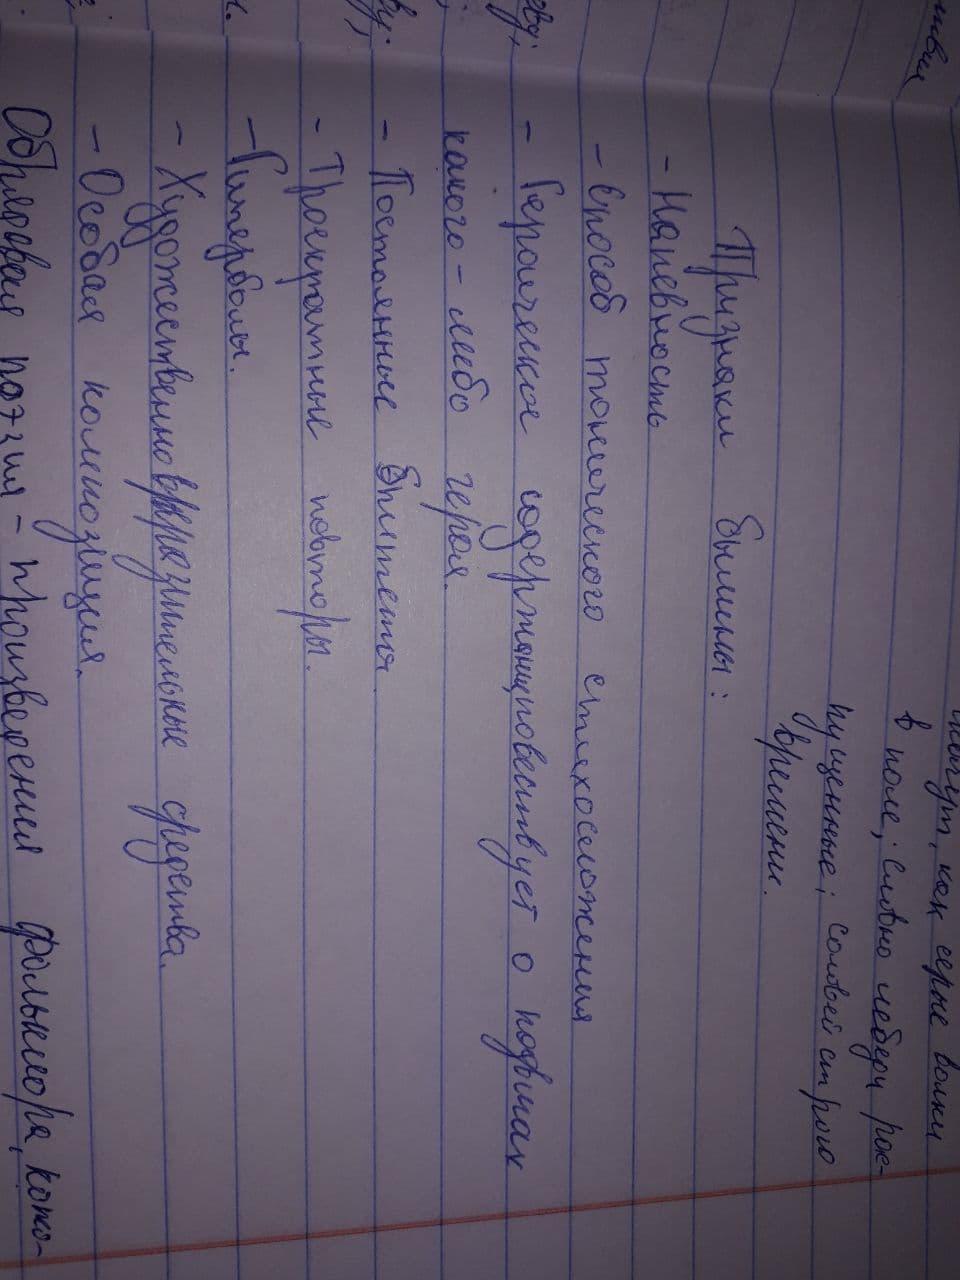 как серые волки
в поле, словно лебеди рос-
пущенные; соловей строго
времени.
Признаки былины:
- Напевность
- Способ тонического стихосложения
- Героическое содержание, повествует о подвигах
какого-либо героя.
- Постоянные эпитеты
- Троекратные повторы.
- Гиперболы.
- Художественновыразительные средства.
- Особая композиция.
Обрядовая поэзия - произведения фольклора, кото-